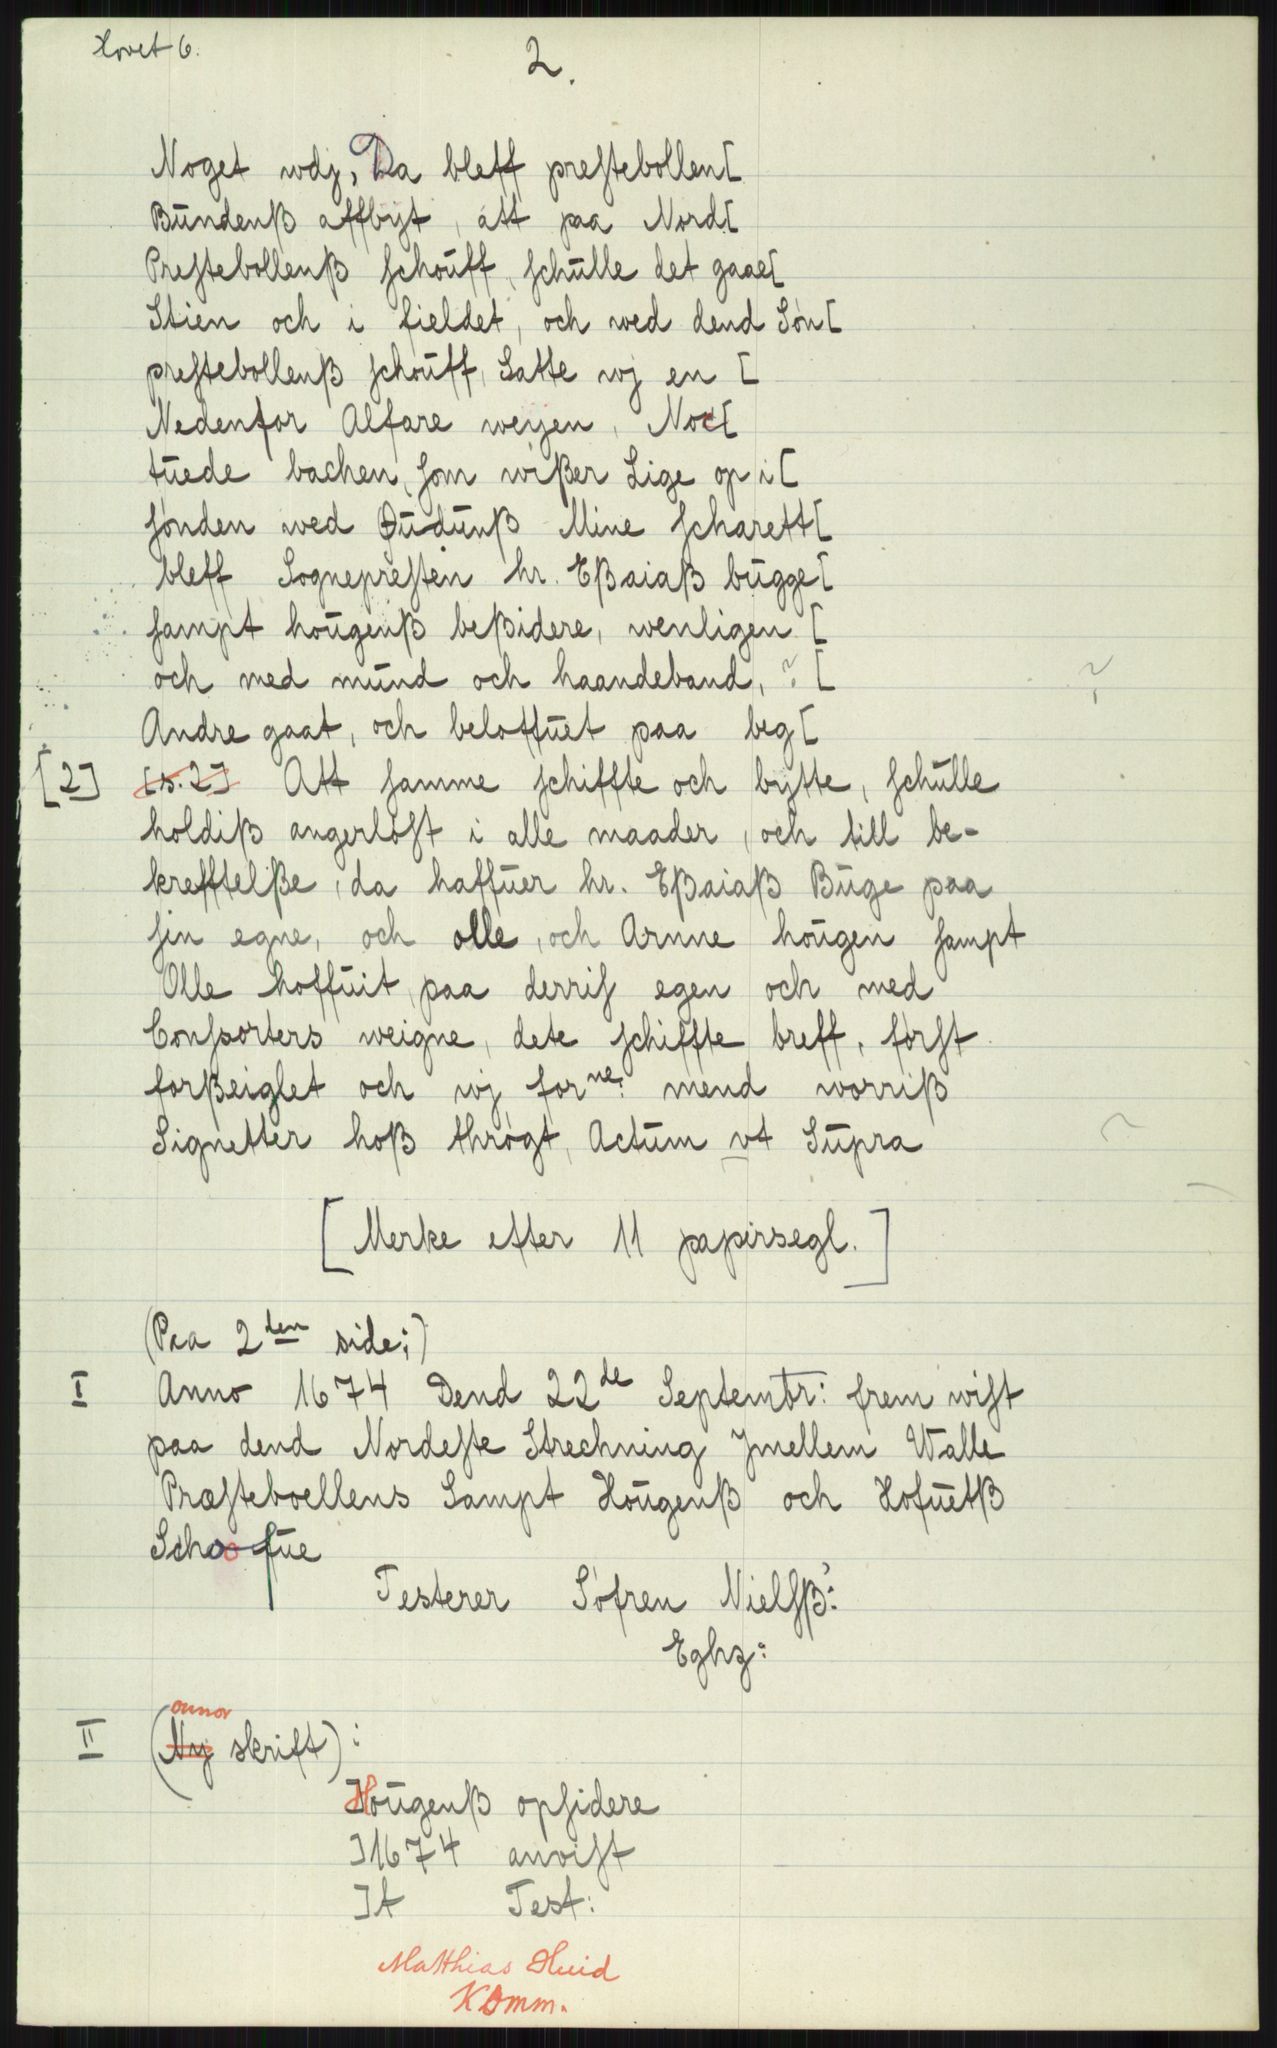 Hovet 6.
2.
Noget wdj, Da bleff prestebollen[
Bundenß affbyt, att paa Nord[
Prestebollenß schouff, schulle det gaae[
Stien och i fieldet, och wed dend Søn[
prestebollenß schouff, Satte wj en [
Nedenfor Alfare weyen, Noc[
tuede bachen, som wißer Lige op i [
sønden wed Gudunß Mine scharett[
bleff Sognepresten hr. Eßaiaß bugge[
sampt hougenß beßidere, wenligen [
och med mund och haandeband, ? [
?
Andre gaat, och beloffuet paa beg[
[2] [s. 2] Att samme schiffte och bytte, schulle
holdiß angerløst i alle maader, och till be-
krefftelße, da haffuer hr. Eßaiaß Buge paa
sin egne, och olle, och Arnne hougen sampt
Olle hoffuit, paa derris egen och med
Consorters weigne, dete schiffte breff, først
forßeiglet och wj forne: mend worriß
Signetter hoß thrøgt, Actum vt Supra
[Merke efter 11 papirsegl.]
(Paa 2den side:)
I Anno 1674 Dend 22de Septembr: frem wist
paa dend Nordeste Strechning Jmellem Walle
Præsteboellens Sampt Hougenß och Hofuetß
Schoofue
Testerer Søfren Nielsß:
Eghz:
onnor
II (Ny skrift):
]Hougenß opsidere
]1674 anvist
]t Test:
Matthias Huid